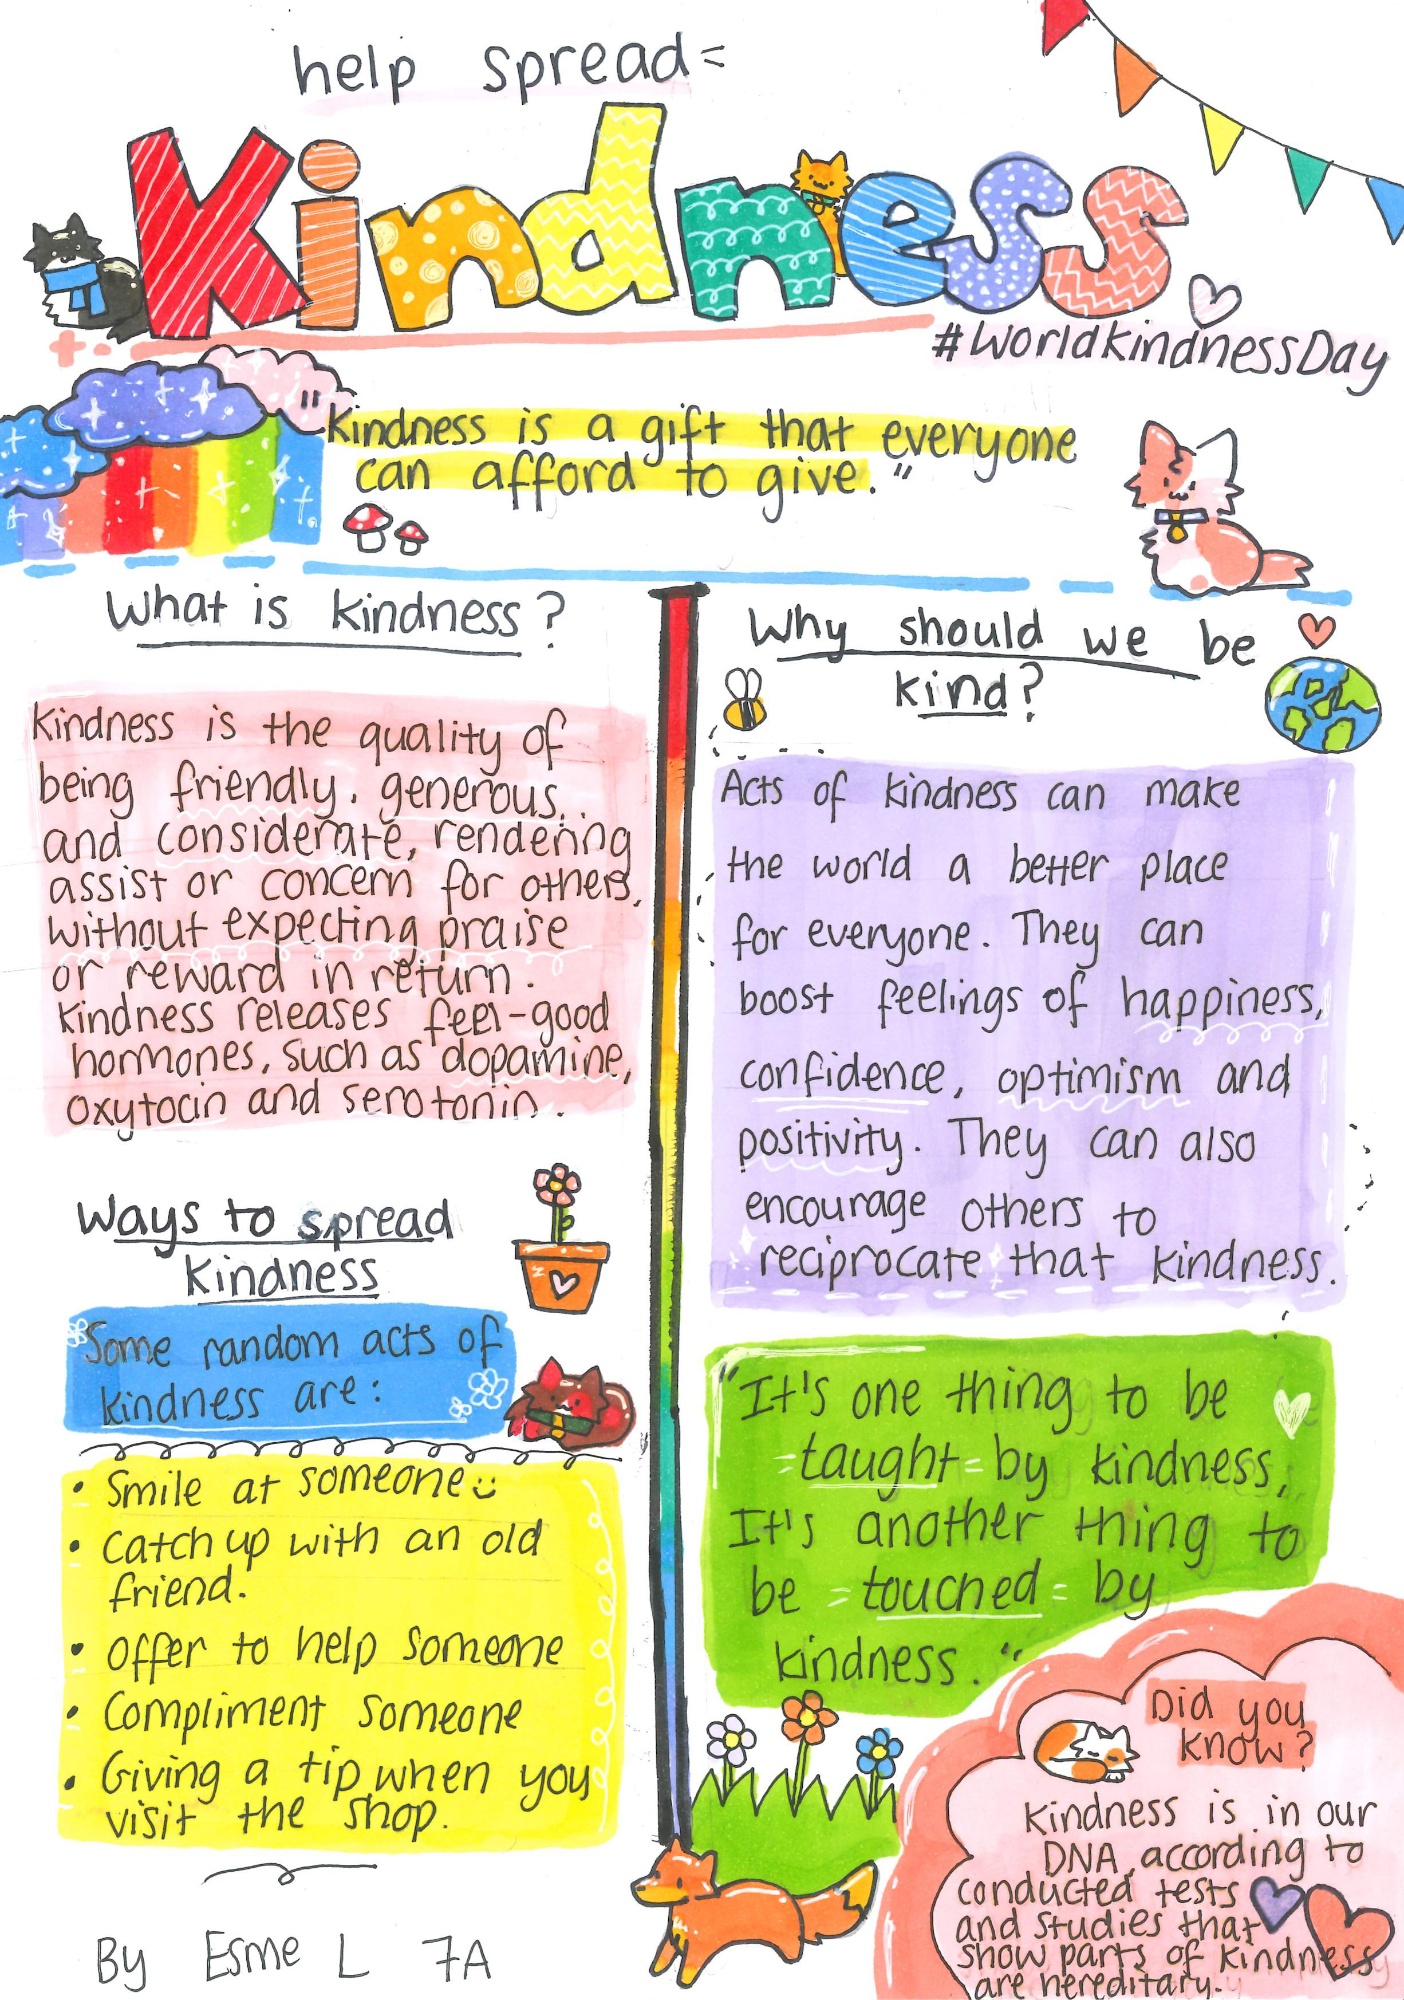 help spread=
Kindness
#WorldkindnessDay
"Kindness is a gift that everyone
can afford to give."
What is kindness?
Kindness is the quality of
being friendly, generous,
and considerate, rendering
assist or concern for others,
without expecting praise
or reward in return.
Kindness releases feel-good
hormones, such as dopamine,
oxytocin and serotonin.
Ways to spread
kindness
Some random acts of
kindness are:
• Smile at someone
• Catch up with an old
friend.
• Offer to help someone
• Compliment someone
• Giving a tip when you
visit the shop.
By Esme L 7A
Why should we be
kind?
Acts of kindness can make
the world a better place
for everyone. They can
boost feelings of happiness,
confidence, optimism and
positivity. They can also
encourage others to
reciprocate that kindness.
"It's one thing to be
taught by kindness,
It's another thing to
be touched by
kindness."
Did you
know?
Kindness is in our
DNA, according to
conducted tests
and studies that
show parts of kindness
are hereditary.